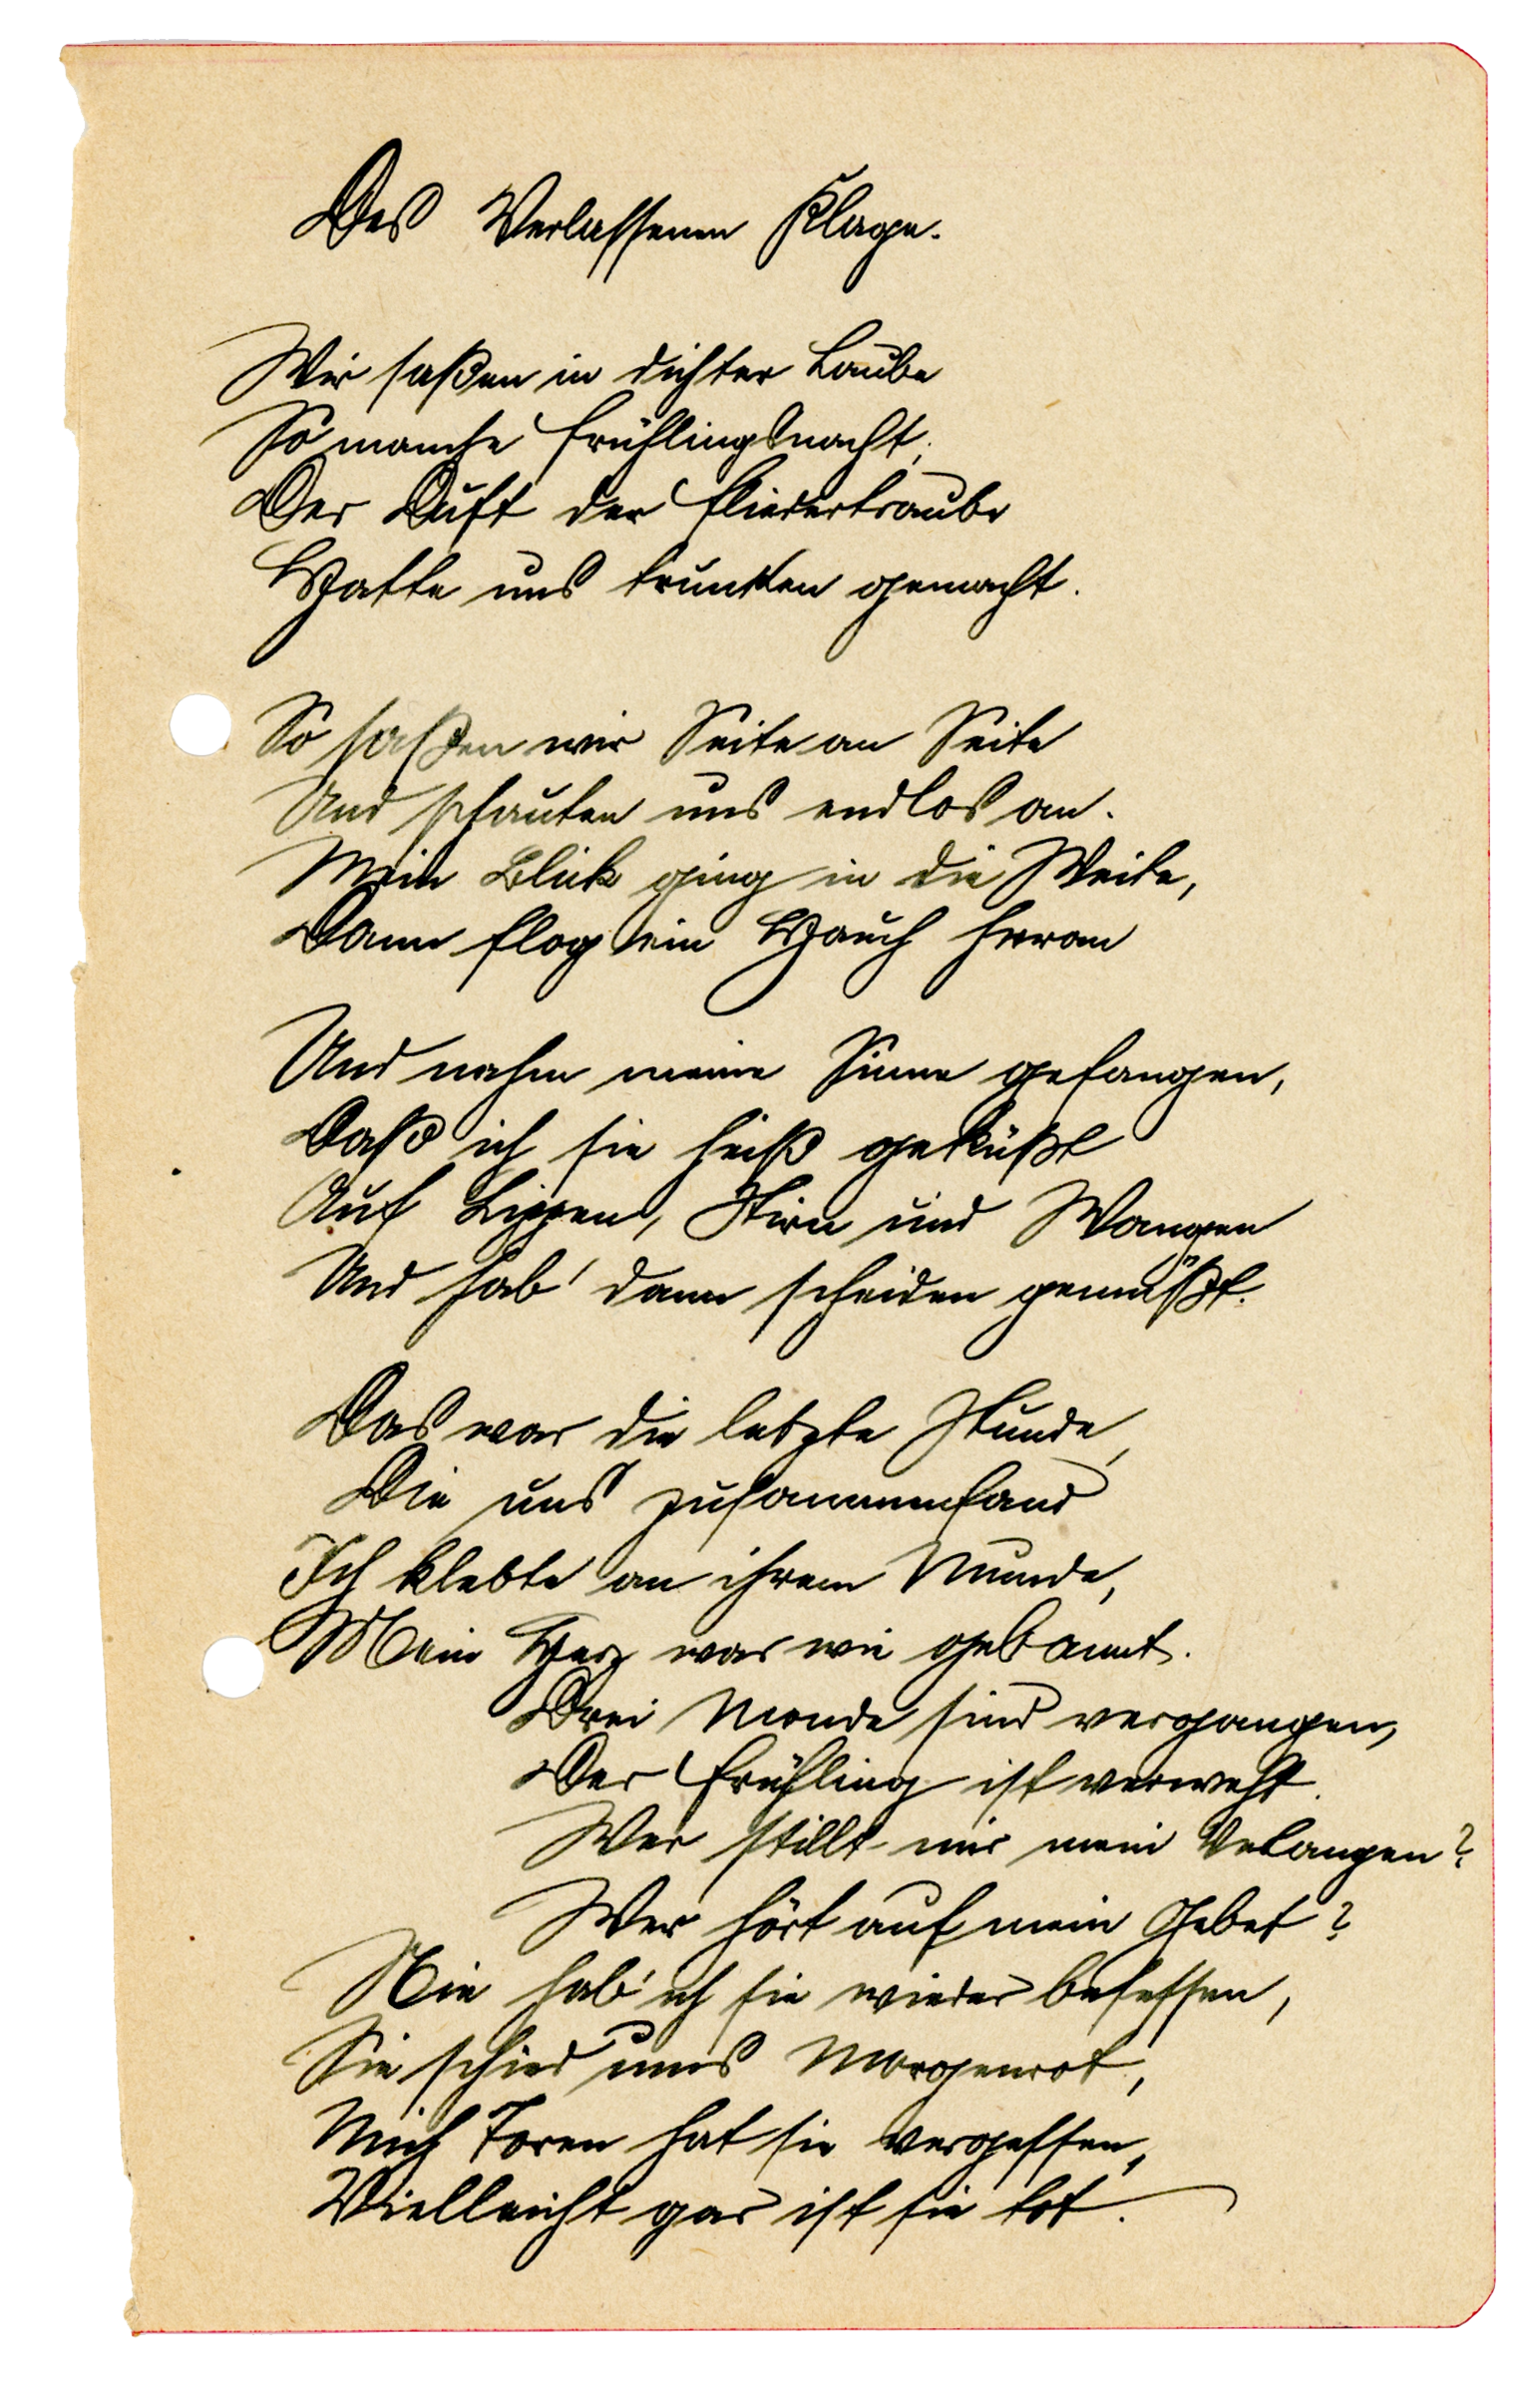 Des Verlassenen Klage.
Wir saßen in dichter Laube
So manche Frühlingsnacht;
Der Duft der Fliedertraube
Hatte uns trunken gemacht.
So saßen wir Seite an Seite
Und schauten uns endlos an.
Mein Blick ging in die Weite,
Dann flog ein Hauch heran
Und nahm meine Sinne gefangen,
Daß ich sie heiß geküßt
Auf Lippen, Stirn und Wangen
Und hab' dann scheiden gemüßt.
Das war die letzte Stunde,
Die uns zusammenfand
Ich klebte an ihrem Munde,
Mein Herz war wie gebannt.
Drei Monde sind vergangen,
Der Frühling ist verweht.
Wer stillt mir mein Velangen?
Wer hört auf mein Gebet?
Nie hab' ich sie wieder besessen,
Sie schied ums Morgenrot,
Mich Toren hat sie vergessen,
Vielleicht gar ist sie tot.